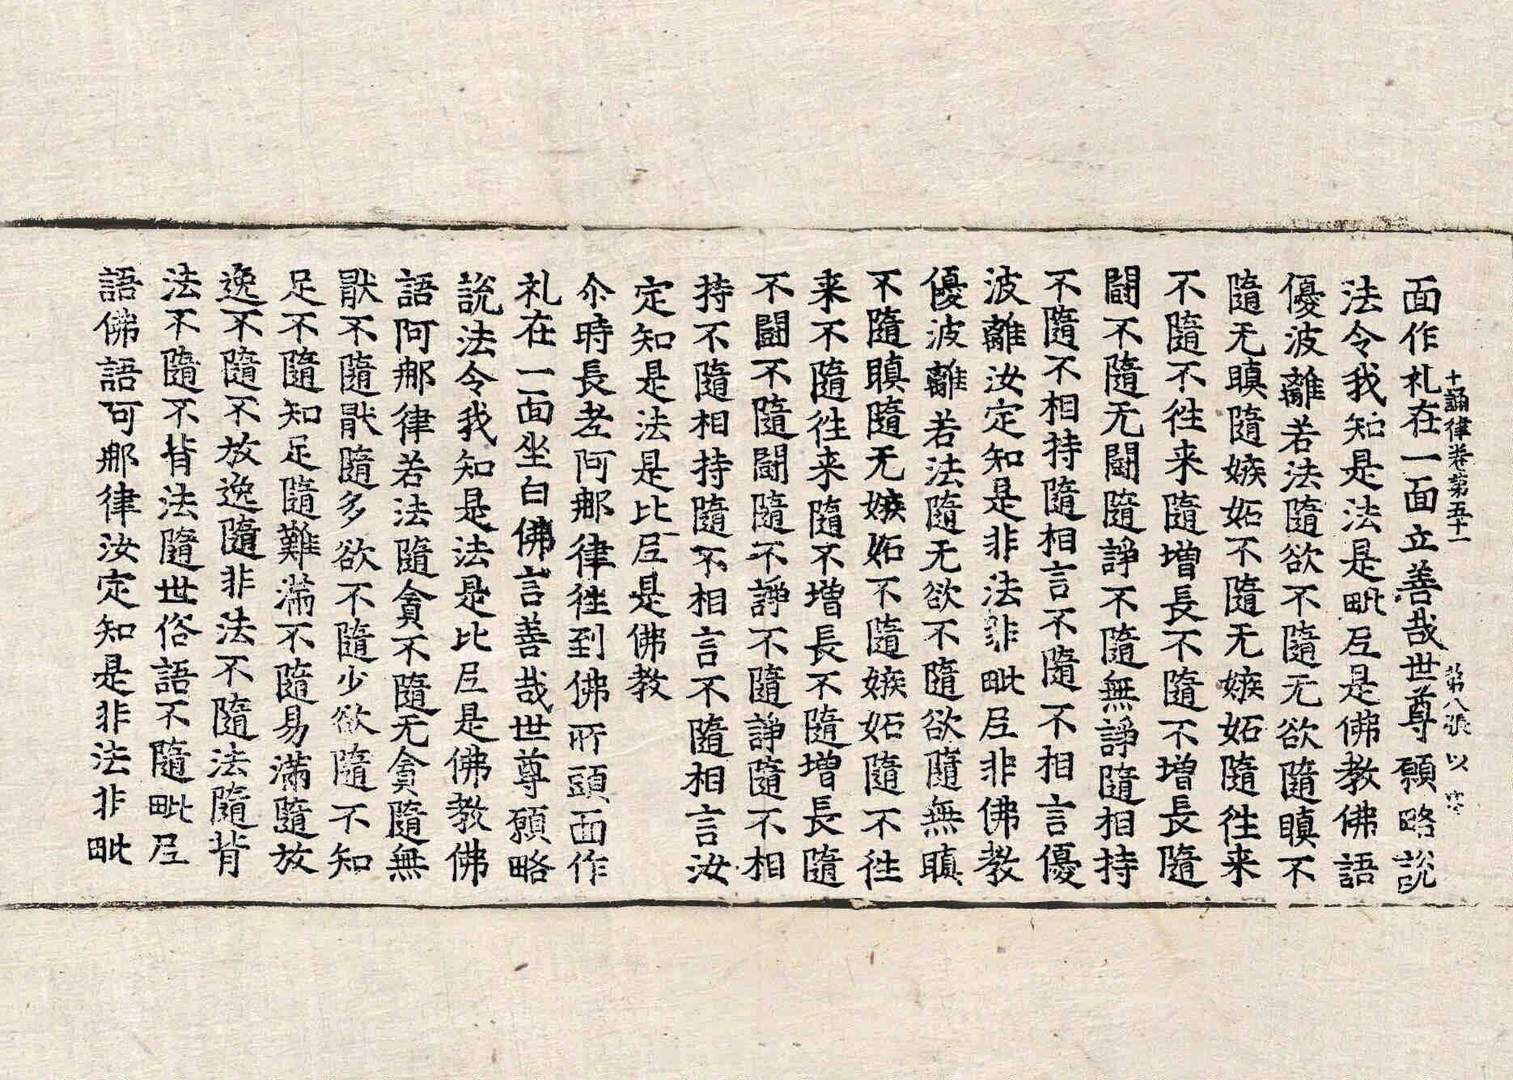 十誦律卷第五十一　第八張　以字
面作礼在一面立善哉世尊願略說
法令我知是法是毗尼是佛教佛語
優波離若法隨欲不隨无欲隨瞋不
隨无瞋隨嫉妬不隨无嫉妬隨往来
不隨不往来隨增長不隨不增長隨
鬪不隨无鬪隨諍不隨無諍隨相持
不隨不相持隨相言不隨不相言優
波離汝定知是非法非毗尼非佛教
優波離若法隨无欲不隨欲隨無瞋
不隨瞋隨无嫉妬不隨嫉妬隨不往
来不隨往来隨不增長不隨增長隨
不鬪不隨鬪隨不諍不隨諍隨不相
持不隨相持隨不相言不隨相言汝
定知是法是比尼是佛教
尒時長老阿那律往到佛所頭面作
礼在一面坐白佛言善哉世尊願略
說法令我知是法是比尼是佛教佛
語阿那律若法隨貪不隨无貪隨無
猒不隨猒隨多欲不隨少欲隨不知
足不隨知足隨難滿不隨易滿隨放
逸不隨不放逸隨非法不隨法隨背
法不隨不背法隨世俗語不隨毗尼
語佛語阿那律汝定知是非法非毗